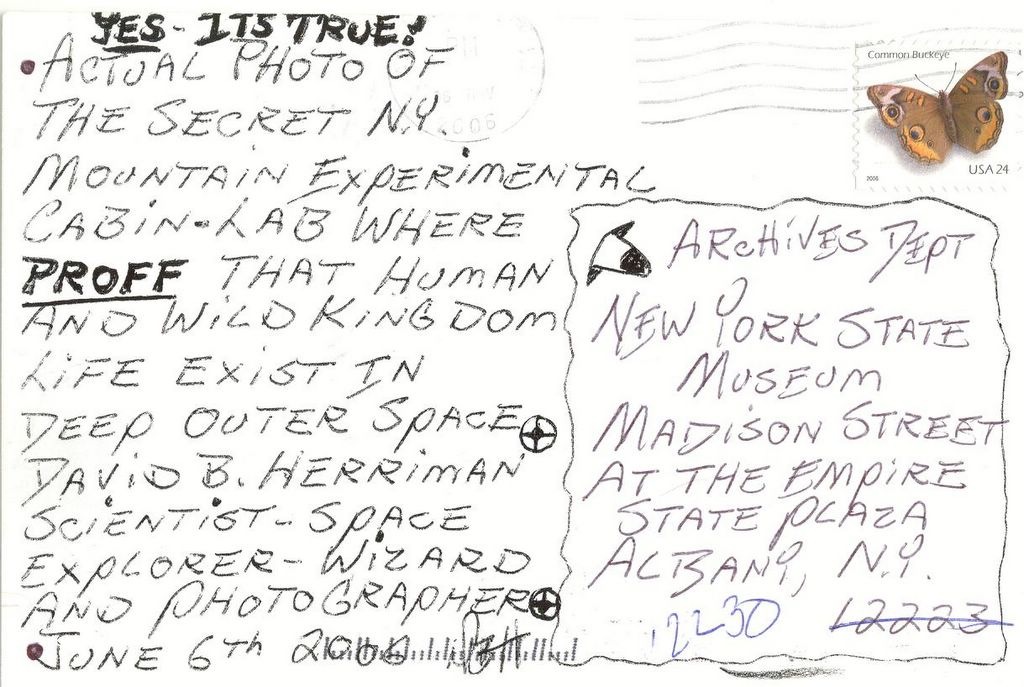 YES - ITS TRUE!
ACTUAL PHOTO OF
THE SECRET N.Y.
MOUNTAIN EXPERIMENTAL
CABIN-LAB WHERE
PROFF THAT HUMAN
AND WILD KINGDOM
LIFE EXIST IN
DEEP OUTER SPACE
DAVID B. HERRIMAN
SCIENTIST - SPACE
EXPLORER - WIZARD
AND PHOTOGRAPHER
JUNE 6TH 2006 DBH
Common Buckeye
2006
USA 24
ARCHIVES DEPT
NEW YORK STATE
MUSEUM
MADISON STREET
AT THE EMPIRE
STATE PLAZA
ALBANY, N.Y.
12230 12223